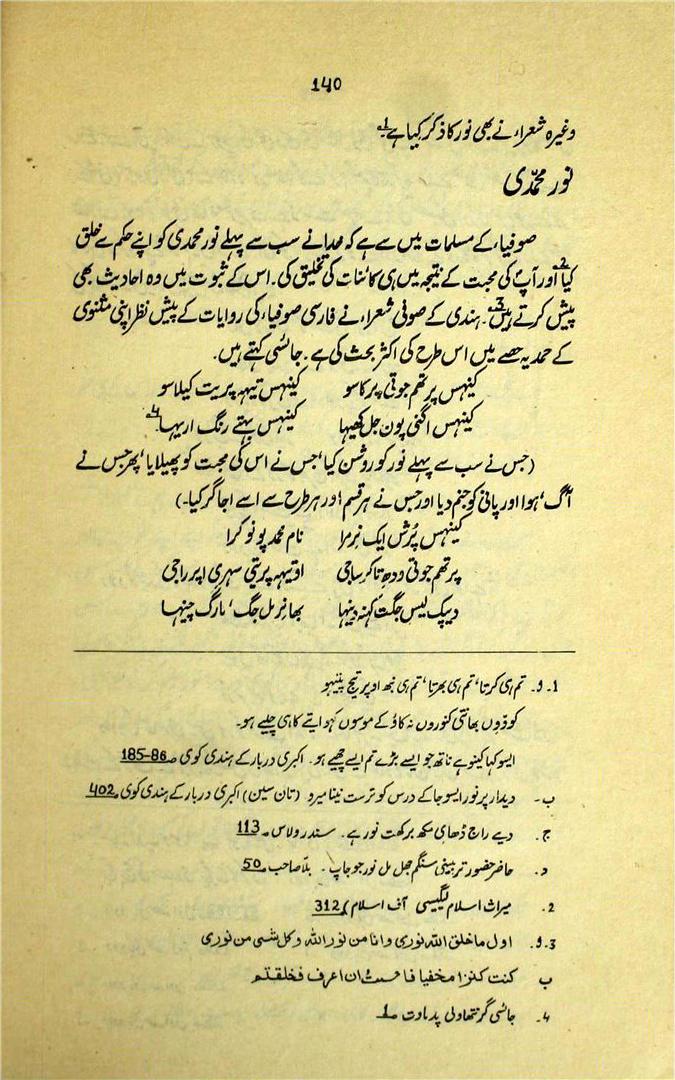 140
وغیرہ شعراء نے بھی نور کا ذکر کیا ہے1؂
نور محمّدی
صوفیاء کے مسلمات میں سے ہے کہ خدا نے سب سے پہلے نور محمدی کو اپنے حکم سے خلق
کیا2؂ اور آپؐ کی محبت کے نتیجہ میں ہی کائنات کی تخلیق کی۔ اس کے ثبوت میں وہ احادیث بھی
پیش کرتے ہیں3؂۔ ہندی کے صوفی شعراء نے فارسی صوفیاء کی روایات کے پیش نظر اپنی مثنوی
کے حمدیہ حصے میں اس طرح کی اکثر بحث کی ہے۔ جائسی کہتے ہیں۔
کینہس پرتھم جوتی پرکاسو کینہس تیہہ پریت کیلاسو
کینہس اگنی پون جل کھیہا کینہس بہتے رنگ اریہا4؂
(جس نے سب سے پہلے نور کو روشن کیا، جس نے اس کی محبت کو پھیلایا، پھر جس نے
آگ، ہوا اور پانی کو جنم دیا اور جس نے ہر قسم اور ہر طرح سے اسے اجاگر کیا۔)
کینہس پُرش ایک نرمرا نام محمد پونو کرا
پرتھم جوتی ودھ تاکر ساجی او تیہہ پریتی سہری اپر راجی
دیپک لیس جگت کہنہ دینہا بھا نرمل جگ، مارگ چینہا
1۔ و۔ تم ہی کرتا، تم ہی بھرتا، تم ہی نبھ اوپر تیج پنیہو
کوڈوں بھانتی کنوروں نہ کاؤ کے موسوں کہو ایتے کاہی چلیے ہو۔
ایسو کہا کینو ہے ناتھ جو ایسے بڑے تم ایسے چھپے ہو۔ اکبری دربار کے ہندی کوی صـ 185-86
ب۔ دیدار پر نور ایسو جا کے درس کو ترست نینا میرو (تان سین) اکبری دربار کے ہندی کوی صـ 402
ج۔ دیے راج ڈھای مکھ برکھت نور ہے۔ سندر ولاس صـ 113
د۔ حاضر حضور تربینی سنگم جھل مل نور جو جاپ۔ بلّا صاحب صـ 50
2۔ میراث اسلام (لیگیسی آف اسلام) صـ 312
3۔و۔ اول ما خلق اللہ نوری وانا من نور اللہ وکل شیٔ من نوری
ب کنت کنزا مخفیا فاحببت ان اعرف فخلقتم
4۔ جائسی گرنتھاولی پدماوت صـ 1